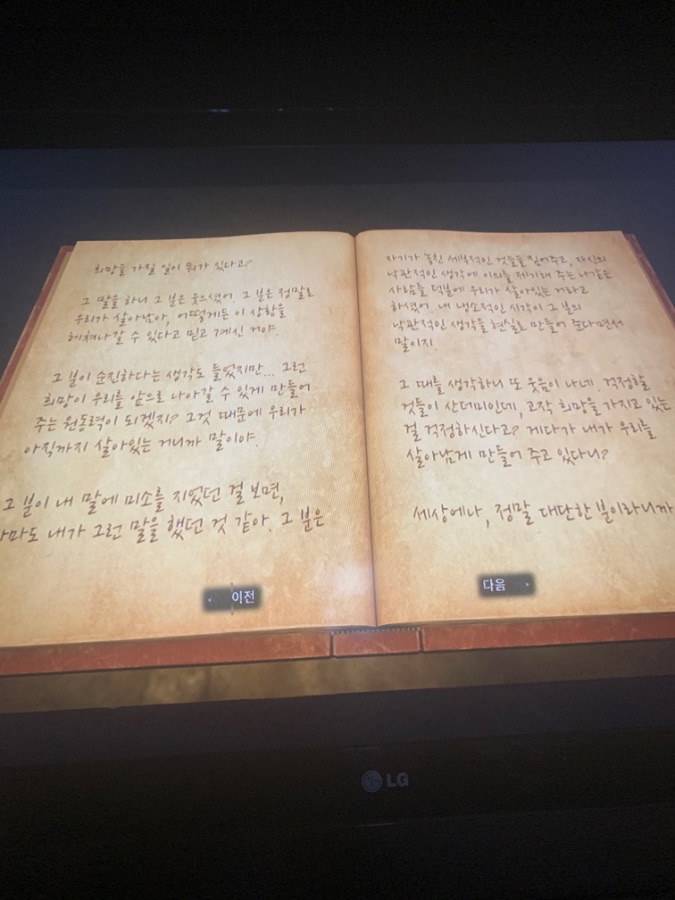 희망을 가질 일이 뭐가 있다고?
그 말을 하니 그 분은 웃으셨어. 그 분은 정말로
우리가 살아남아, 어떻게든 이 상황을
헤쳐나갈 수 있다고 믿고 계신 거야.
그 분이 순진하다는 생각도 들었지만... 그런
희망이 우리를 앞으로 나아갈 수 있게 만들어
주는 원동력이 되겠지? 그것 때문에 우리가
아직까지 살아있는 거니까 말이야.
그 분이 내 말에 미소를 지었던 걸 보면,
아마도 내가 그런 말을 했던 것 같아. 그 분은
이전
자기가 놓친 세부적인 것들을 짚어주고, 자신의
낙관적인 생각에 이의를 제기해 주는 나같은
사람들 덕분에 우리가 살아있는 거라고
하셨어. 내 냉소적인 시각이 그 분의
낙관적인 생각을 현실로 만들어 준다면서
말이지.
그 때를 생각하니 또 웃음이 나네. 걱정할
것들이 산더미인데, 고작 희망을 가지고 있는
걸 걱정하신다고? 게다가 내가 우리를
살아남게 만들어 주고 있다니?
세상에나, 정말 대단한 분이라니까
다음
LG